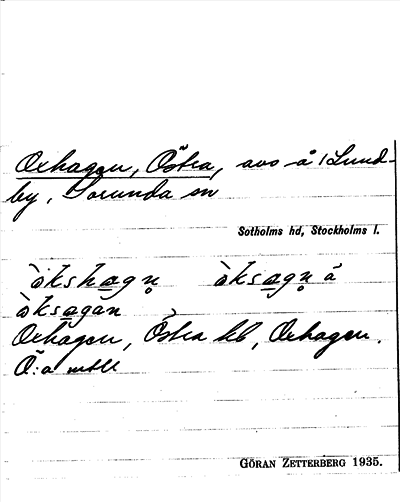 Oxhagen, Östra, avs å 1 Lund-
by, Sorunda sn
Sotholms hd, Stockholms l.
òkshagn̥ òksagn̥ å
òksagan
Oxhagen, Östra kb, Oxhagen,
Ö:a mtbl
GÖRAN ZETTERBERG 1935.